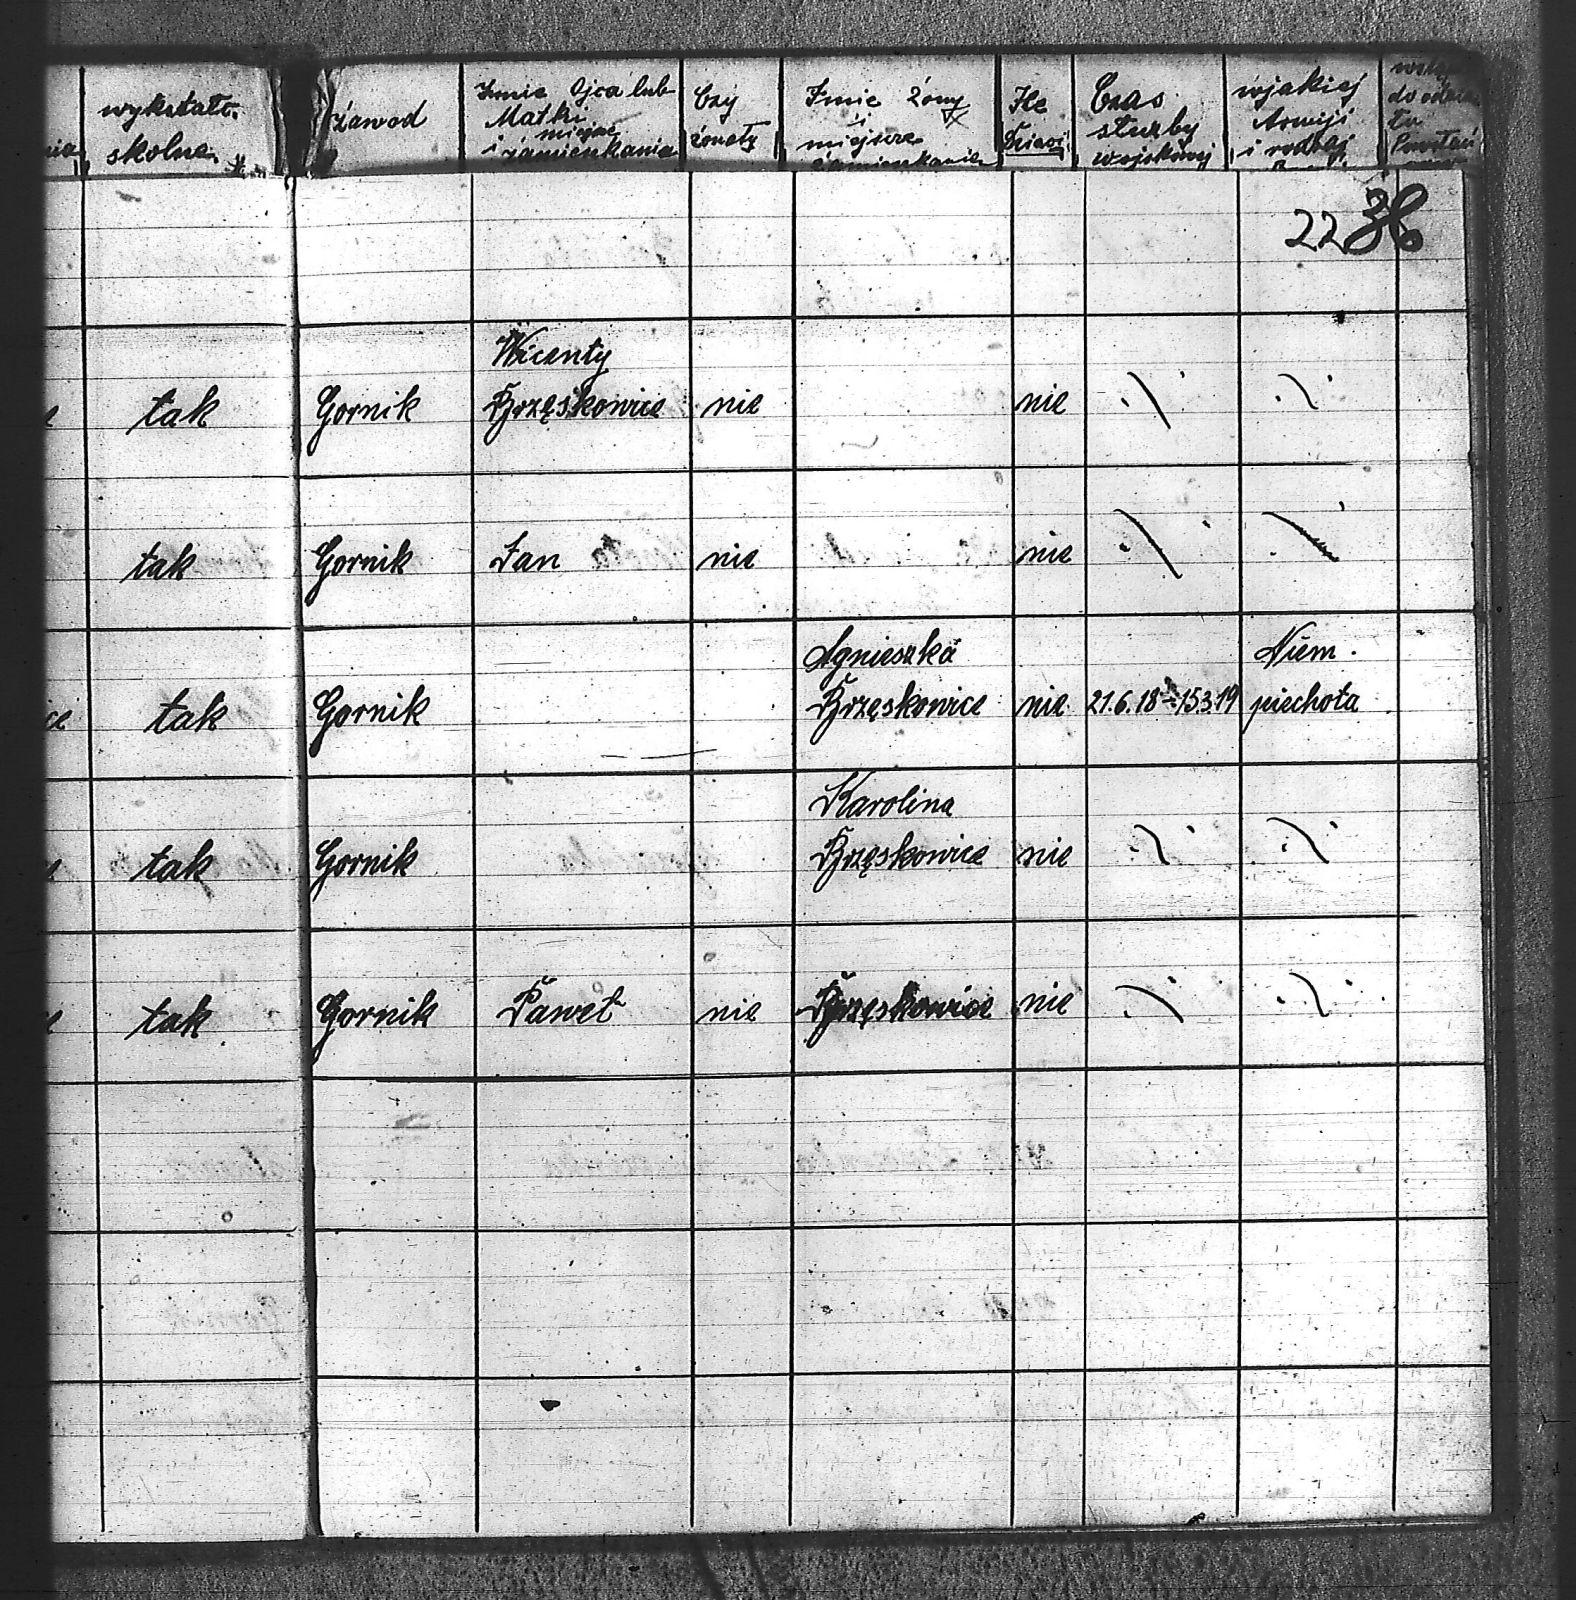 wykształc.
skolne.
zawod
Imie Ojca lub
Matki
miejsc
i zamieszkania
Czy
żonaty
Imie Żony
i
miejsce
zamieszkania
Ile
Dzieci
Czas
służby
wojskowej
w jakiej
Armji
i rodzaj
do oddzia
łu
Powstań
22 36
Wicenty
tak Gornik Brzęśkowice nie nie ./. ./.
tak Gornik Jan nie nie ./. ./.
Agnieszka Niem.
tak Gornik Brzęskowice nie 21.6.18-15.3.19 piechota
Karolina
tak Gornik Brzęskowice nie ./. ./.
tak Gornik Paweł nie Brzęskowice nie ./. ./.